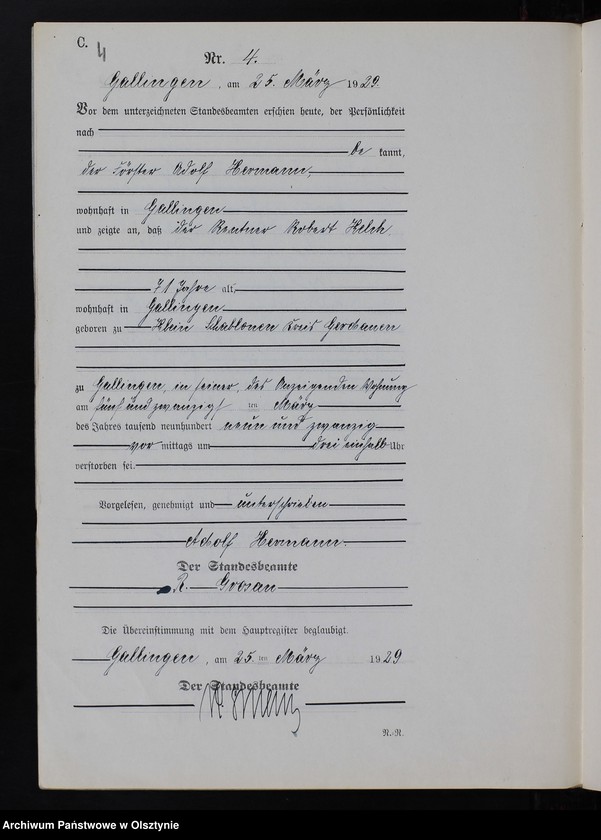 C.
4
Nr. 4.
Gallingen, am 25. März 1929.
Vor dem unterzeichneten Standesbeamten erschien heute, der Persönlichkeit
nach
be kannt,
der Förster Adolf Hermann,
wohnhaft in Gallingen
und zeigte an, daß der Rentner Robert
71 Jahre alt,
wohnhaft in Gallingen
geboren zu Klein Schablonen Kreis Gerdauen
zu Gallingen, in seiner, des Anzeigenden Wohnung
am fünf und zwanzig ten März
des Jahres tausend neunhundert neun und zwanzig
vor mittags um drei einhalb Uhr
verstorben sei.
Vorgelesen, genehmigt und unterschrieben
Adolf Hermann.
Der Standesbeamte
R.
Die Übereinstimmung mit dem Hauptregister beglaubigt.
Gallingen, am 25. ten März 1929
Der Standesbeamte
R.-R.
Archiwum Państwowe w Olsztynie